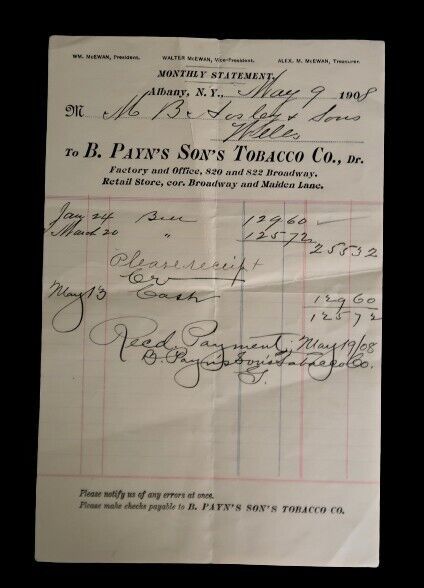 WM. McEWAN, President. WALTER McEWAN, Vice-President. ALEX. M. McEWAN, Treasurer.
MONTHLY STATEMENT.
Albany, N. Y., May 9 1908
M M B Hosley & Sons
Wells
To B. PAYN'S SON'S TOBACCO CO., Dr.
Factory and Office, 820 and 822 Broadway.
Retail Store, cor. Broadway and Maiden Lane.
Jan 24 Bill 129 60
March 20 " 125 72
255 32
Please receipt
Cr
May 13 Cash 129 60
125 72
Recd. Payment, May 19/08
B. Payn's Son's Tobacco Co.
Please notify us of any errors at once.
Please make checks payable to B. PAYN'S SON'S TOBACCO CO.